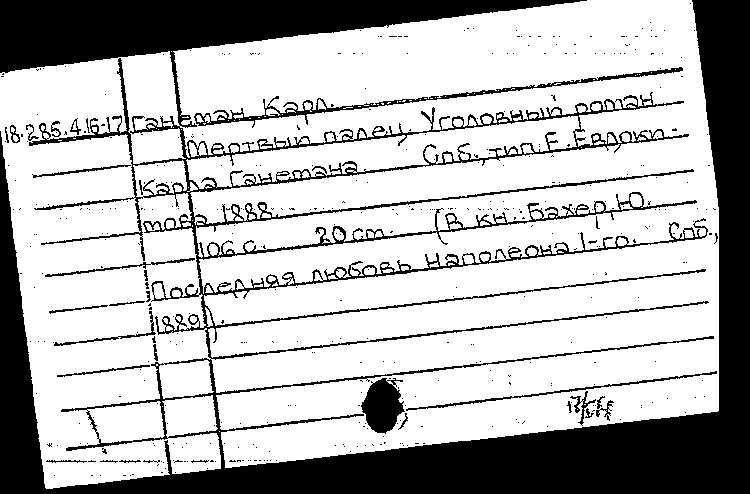 18.285.4.16-17 Ганеман, Карл.
Мертвый палец. Уголовный роман
Карла Ганемана. Спб., тип. Е. Евдоки-
мова, 1888.
106 с. 20 см. (В кн.: Бахер, Ю.
Последняя любовь Наполеона I-го. Спб.,
1889).